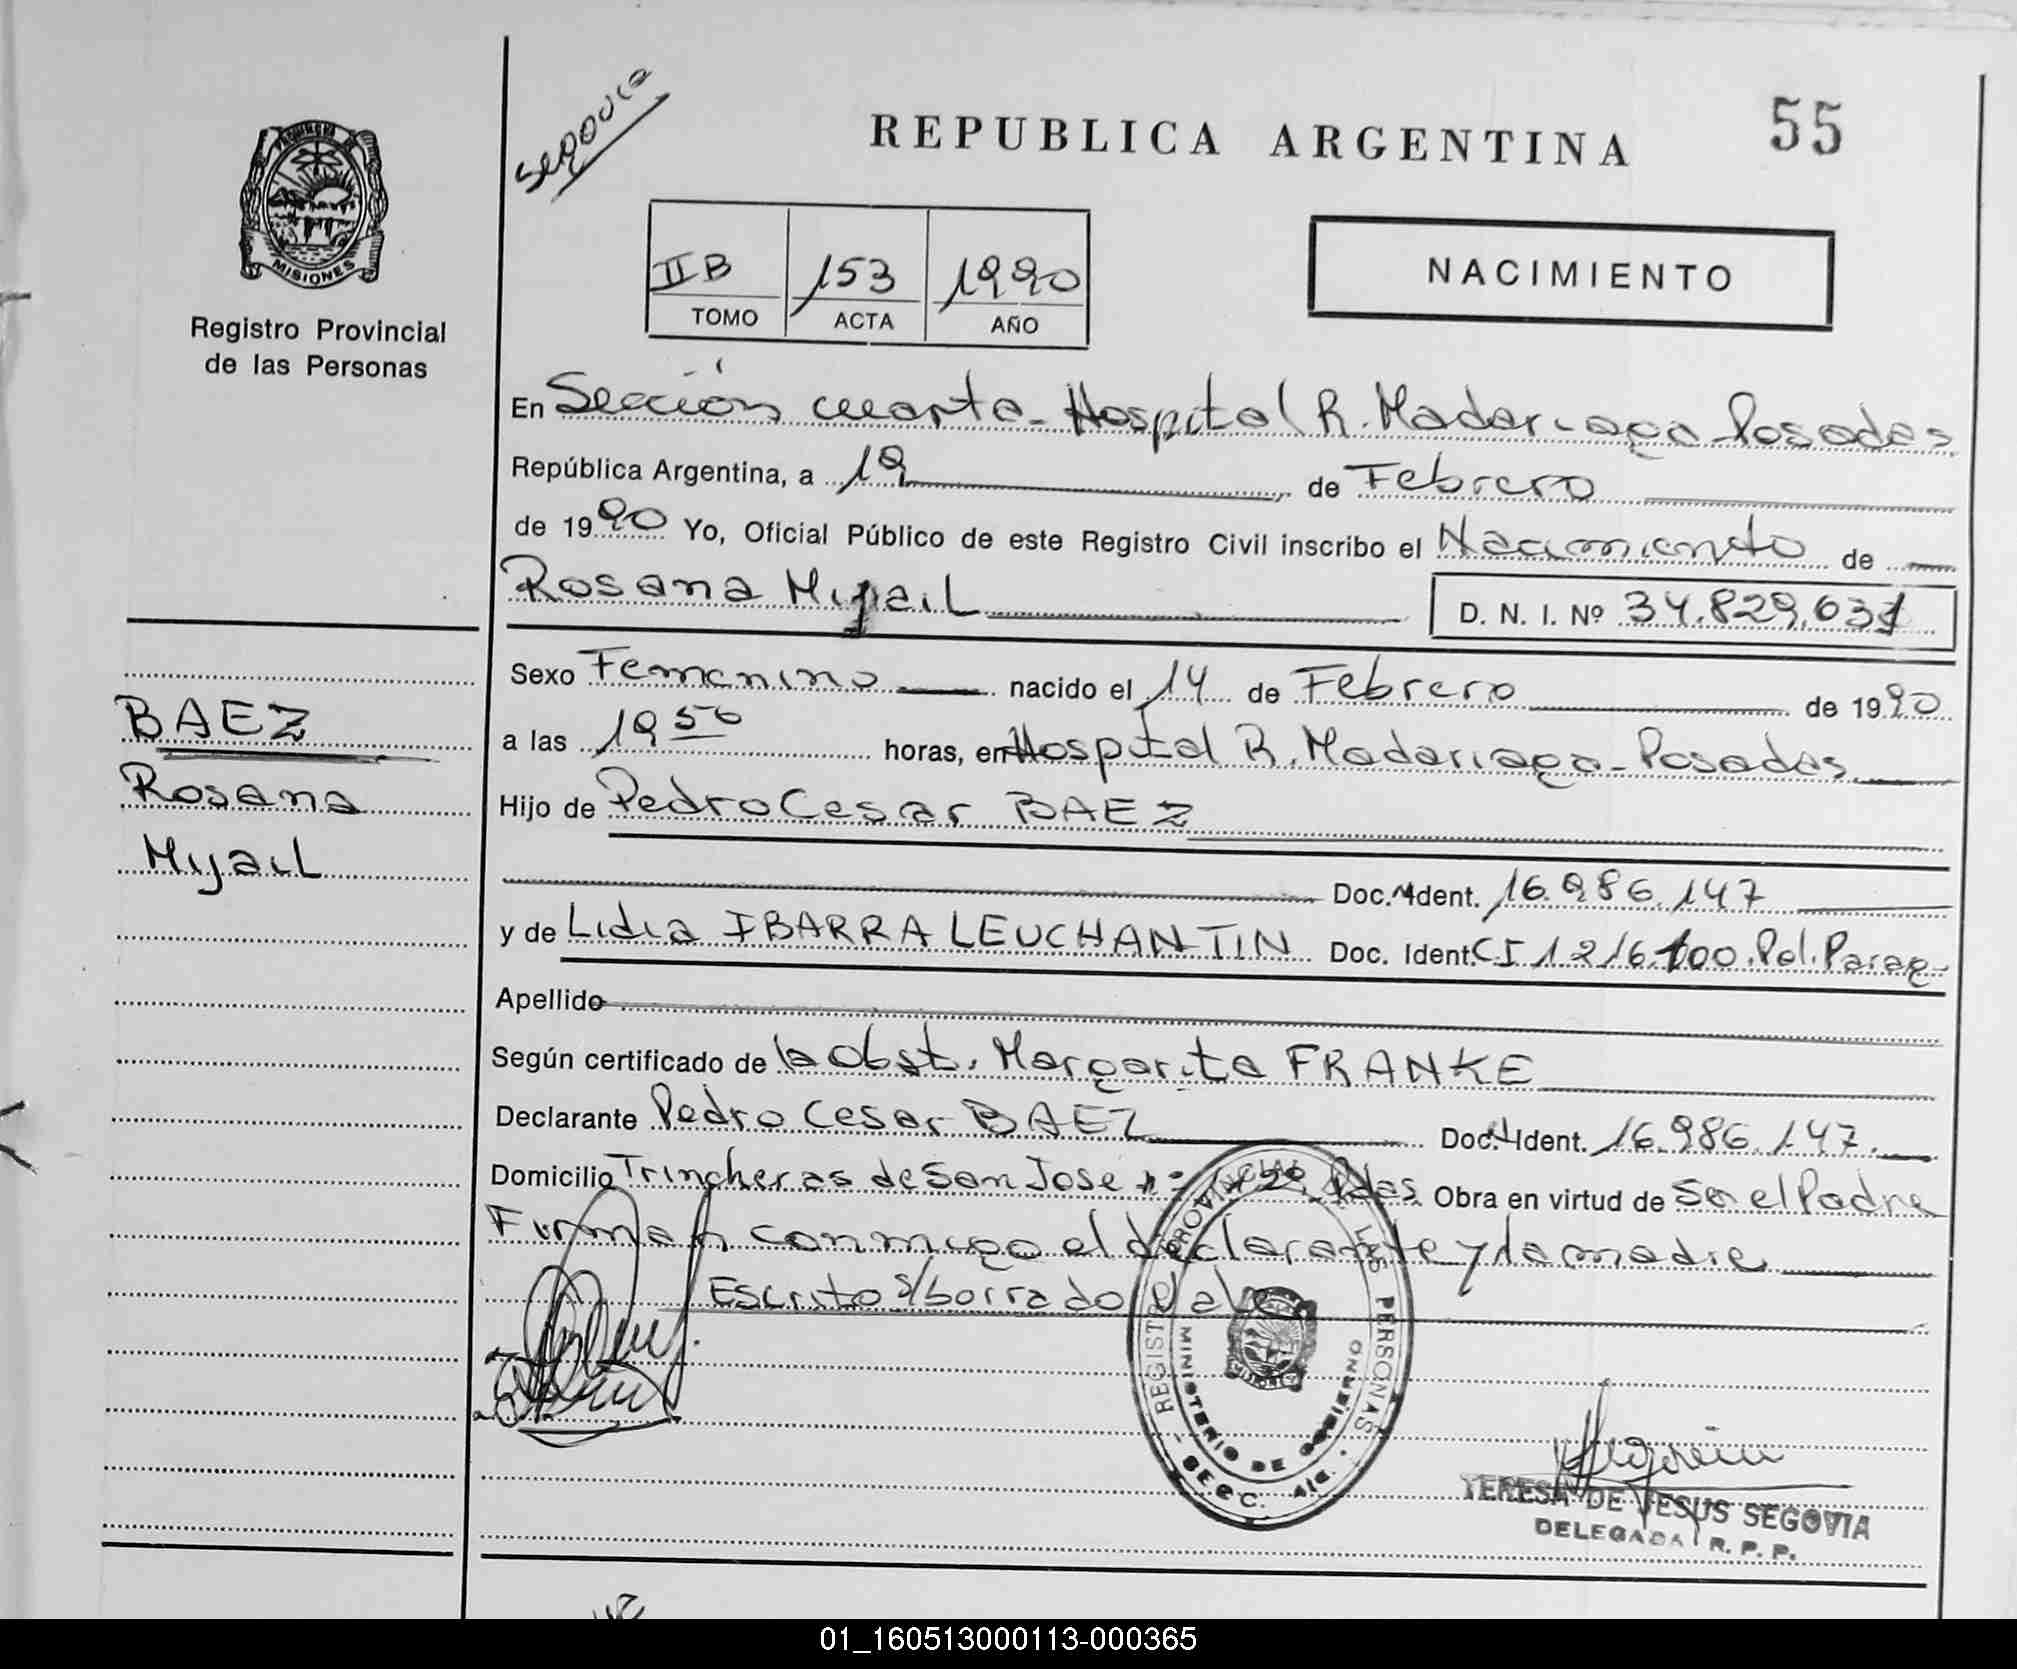 segovia
REPUBLICA ARGENTINA
55
PROVINCIA DE
MISIONES
Registro Provincial
de las Personas
II B 153 1990
TOMO ACTA AÑO
NACIMIENTO
En Sección cuarta - Hospital R. Madariaga Posadas
República Argentina, a 19 de Febrero
de 1990 Yo, Oficial Público de este Registro Civil inscribo el Nacimiento de
Rosana Myjail D. N. I. Nº 34.829.631
BAEZ
Rosana
Myjail
Sexo Femenino nacido el 14 de Febrero de 1990
a las 19 50 horas, en Hospital R. Madariaga - Posadas
Hijo de Pedro Cesar BAEZ
Doc. Ident. 16.986.147
y de Lidia IBARRA LEUCHANTIN Doc. Ident. CI 1216.100. Pol. Parag-
Apellido
Según certificado de la Obst. Margarita FRANKE
Declarante Pedro Cesar BAEZ Doc. Ident. 16.986.147.
Domicilio Trincheras de San Jose nº Pdas Obra en virtud de Ser el Padre
Firman conmigo el declarante y la madre
Escrito s/borrado Vale
REGISTRO PROVINCIAL DE LAS PERSONAS
MINISTERIO DE GOBIERNO
- SECC. 4ta. -
TERESA DE JESUS SEGOVIA
DELEGADA R. P. P.
01_160513000113-000365